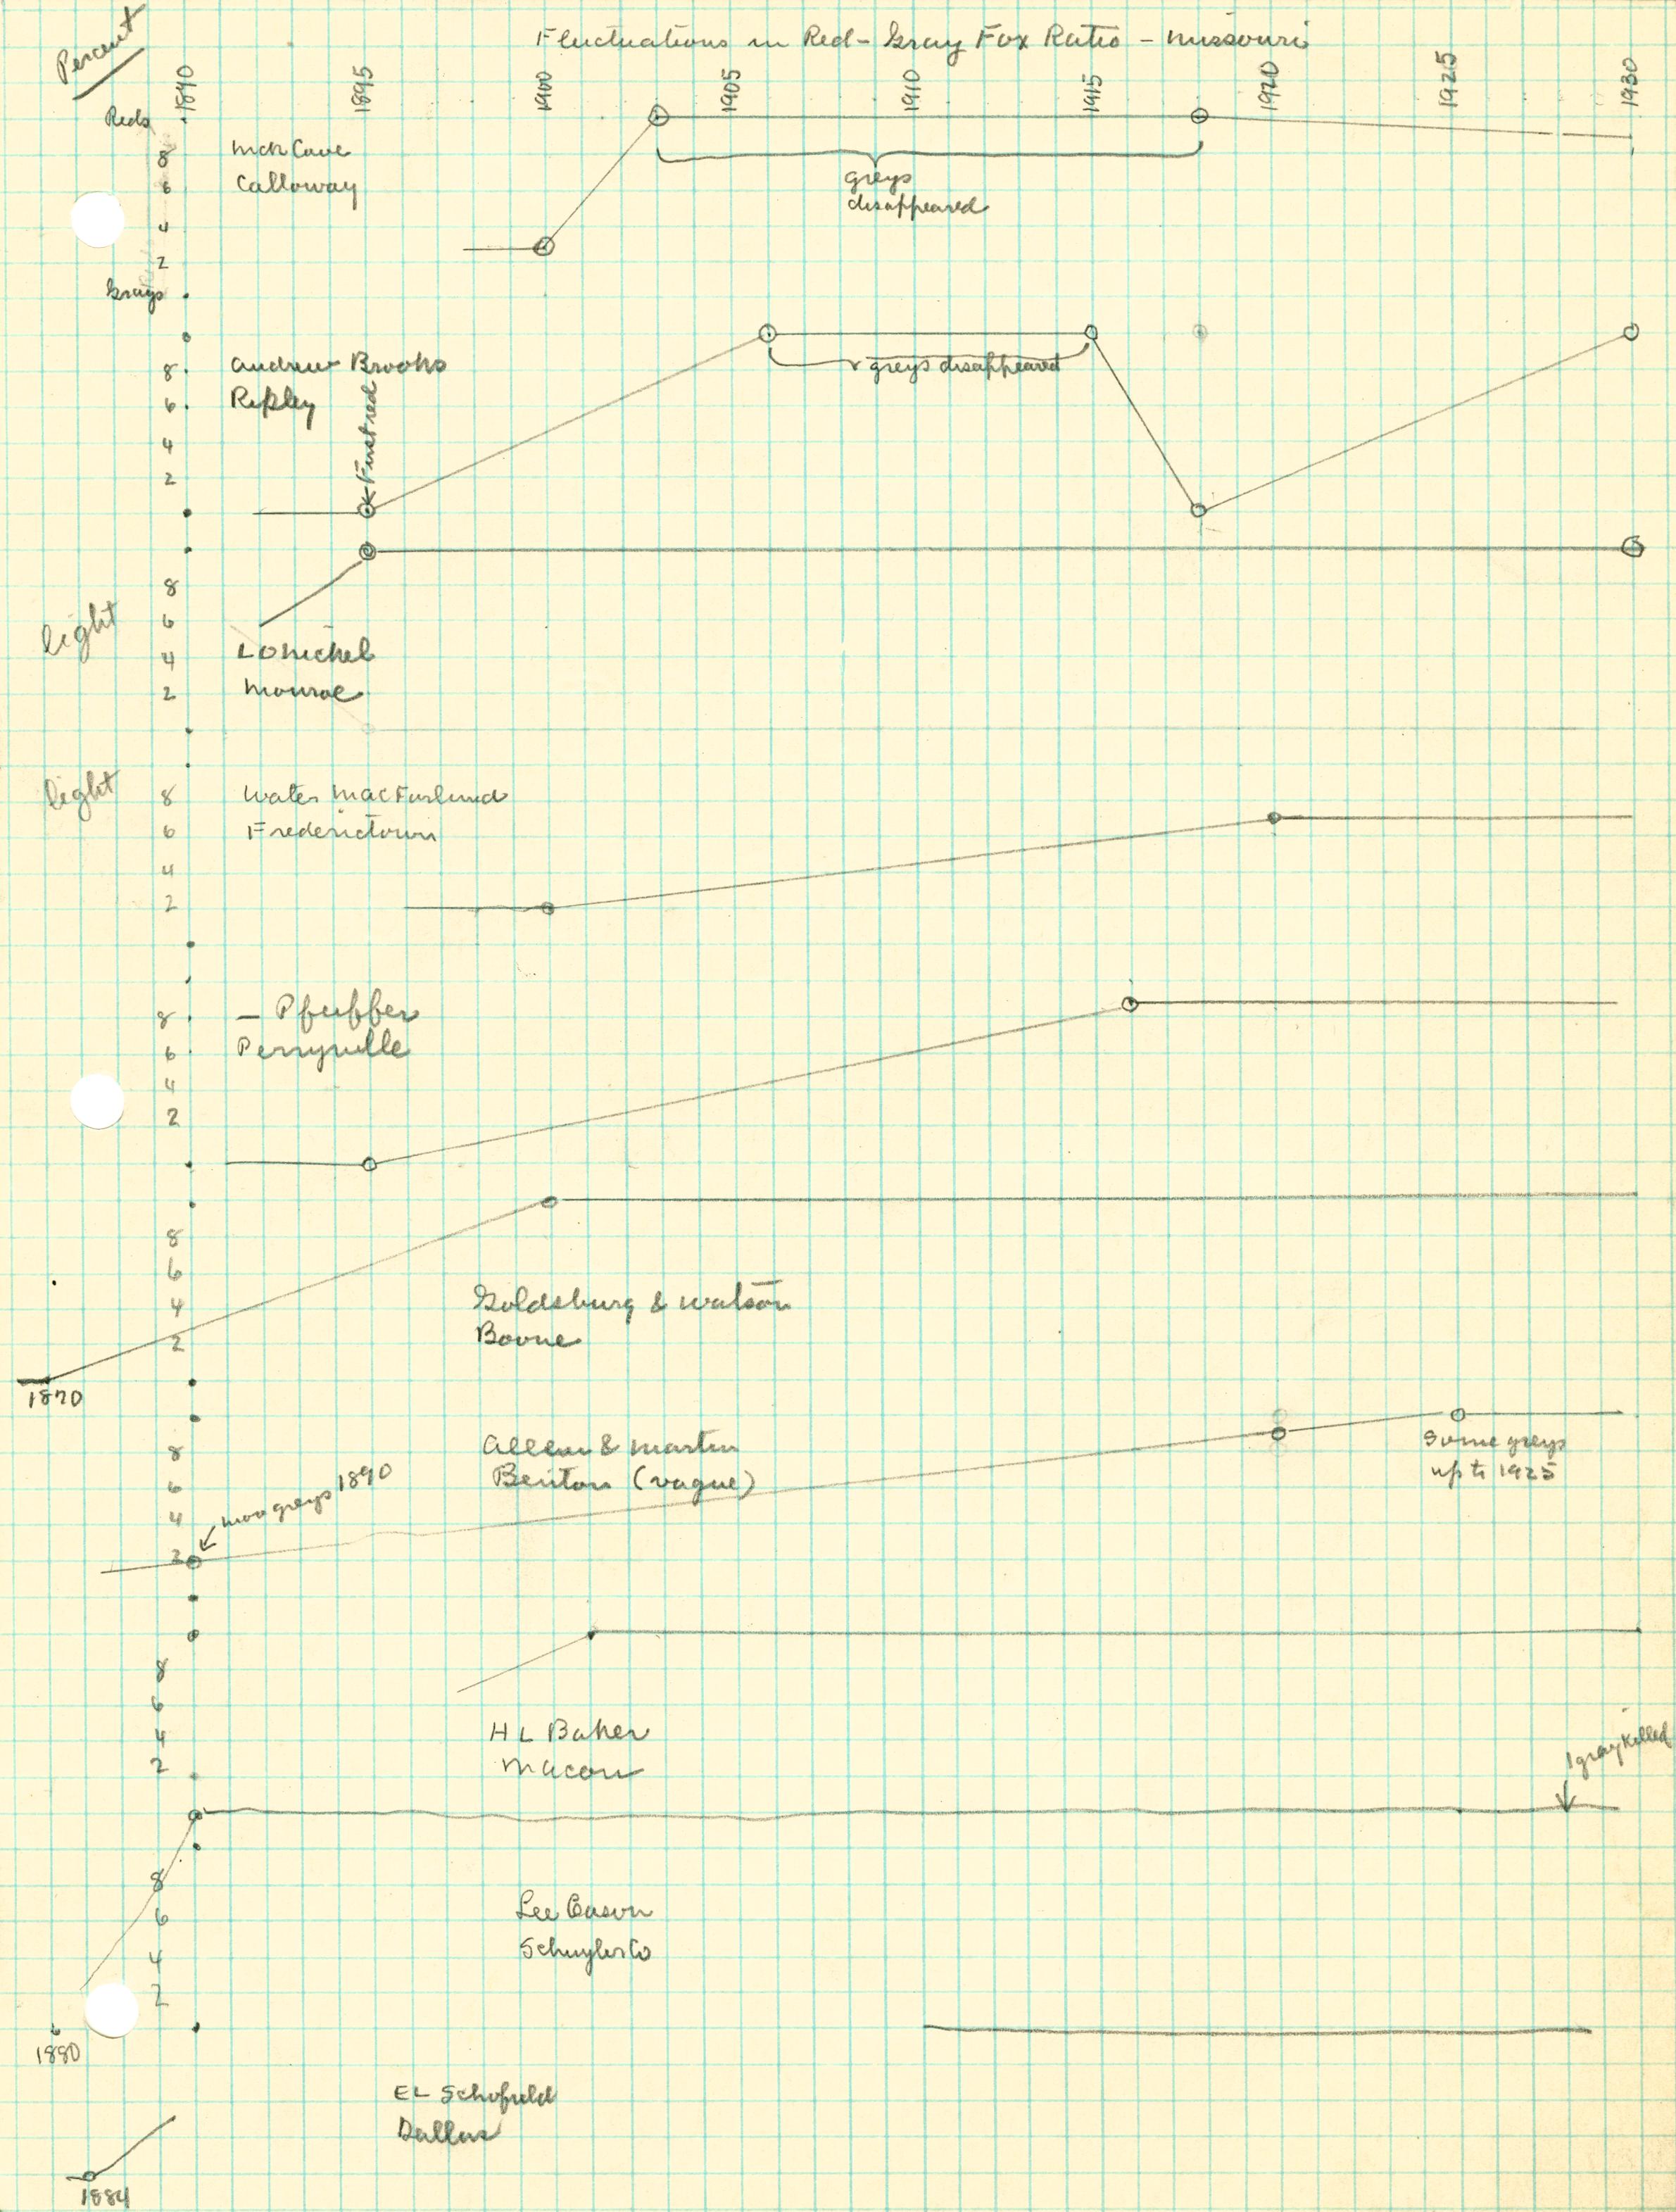 Percent
Fluctuations in Red-Gray Fox Ratio - Missouri
1890 1895 1900 1905 1910 1915 1920 1925 1930
Reds
8
6
4
2
Grays
McCave
Calloway
greys
disappeared
8
6
4
2
Andrew Brooks
Ripley
First red
greys disappeared
light
8
6
4
2
L O Nickel
Monroe
light
8
6
4
2
Water MacFarland
Fredericktown
8
6
4
2
- Pfuffer
Perryville
8
6
4
2
1870
Goldsburg & Watson
Boone
8
6
4
2
more greys 1890
Allen & Martin
Benton (vague)
Some greys
up to 1925
8
6
4
2
H L Baker
Macon
1 gray killed
8
6
4
2
1880
Lee Eason
Schuyler Co
EL Schofield
Dallas
1884